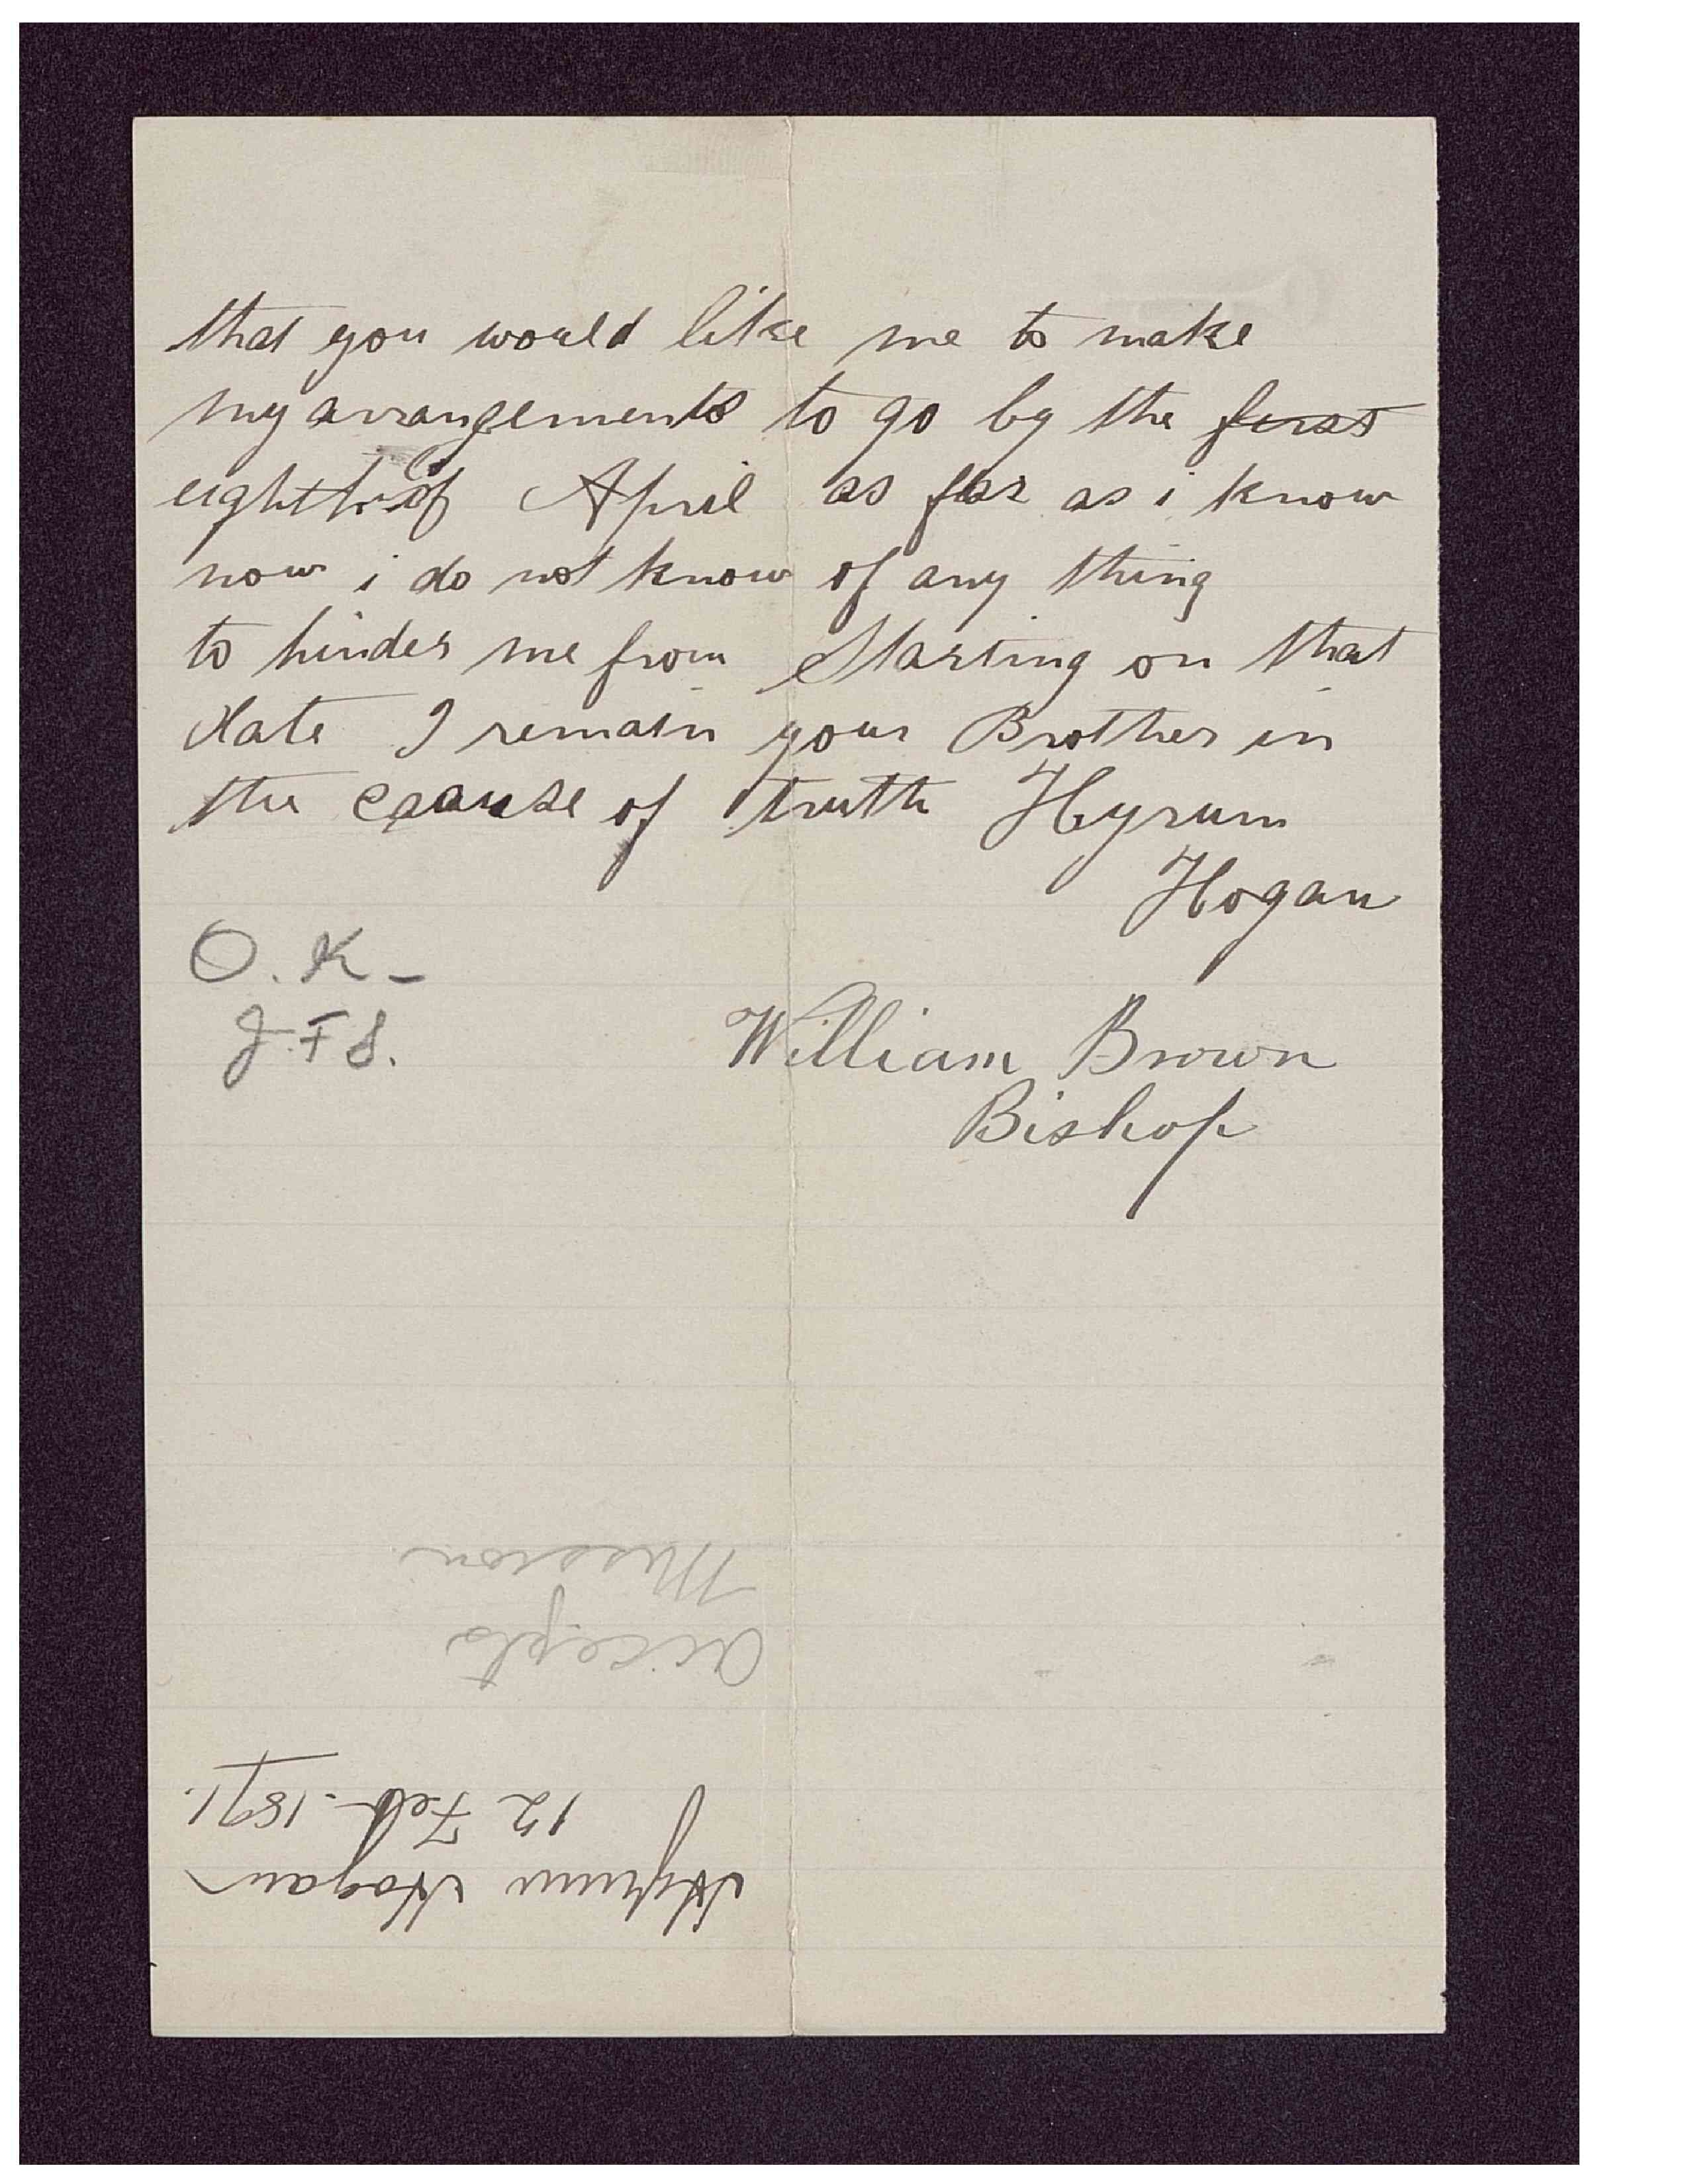 that you would like me to make
my arrangements to go by the first
eighth of April as far as i know
now i do not know of any thing
to hinder me from Starting on that
date I remain your Brother in
the caause of truth Hyrum
Hogan
O. K-
J. F S.
William Brown
Bishop
Hyrum Hogan
12 Feb. 1891.
accepts
Mission